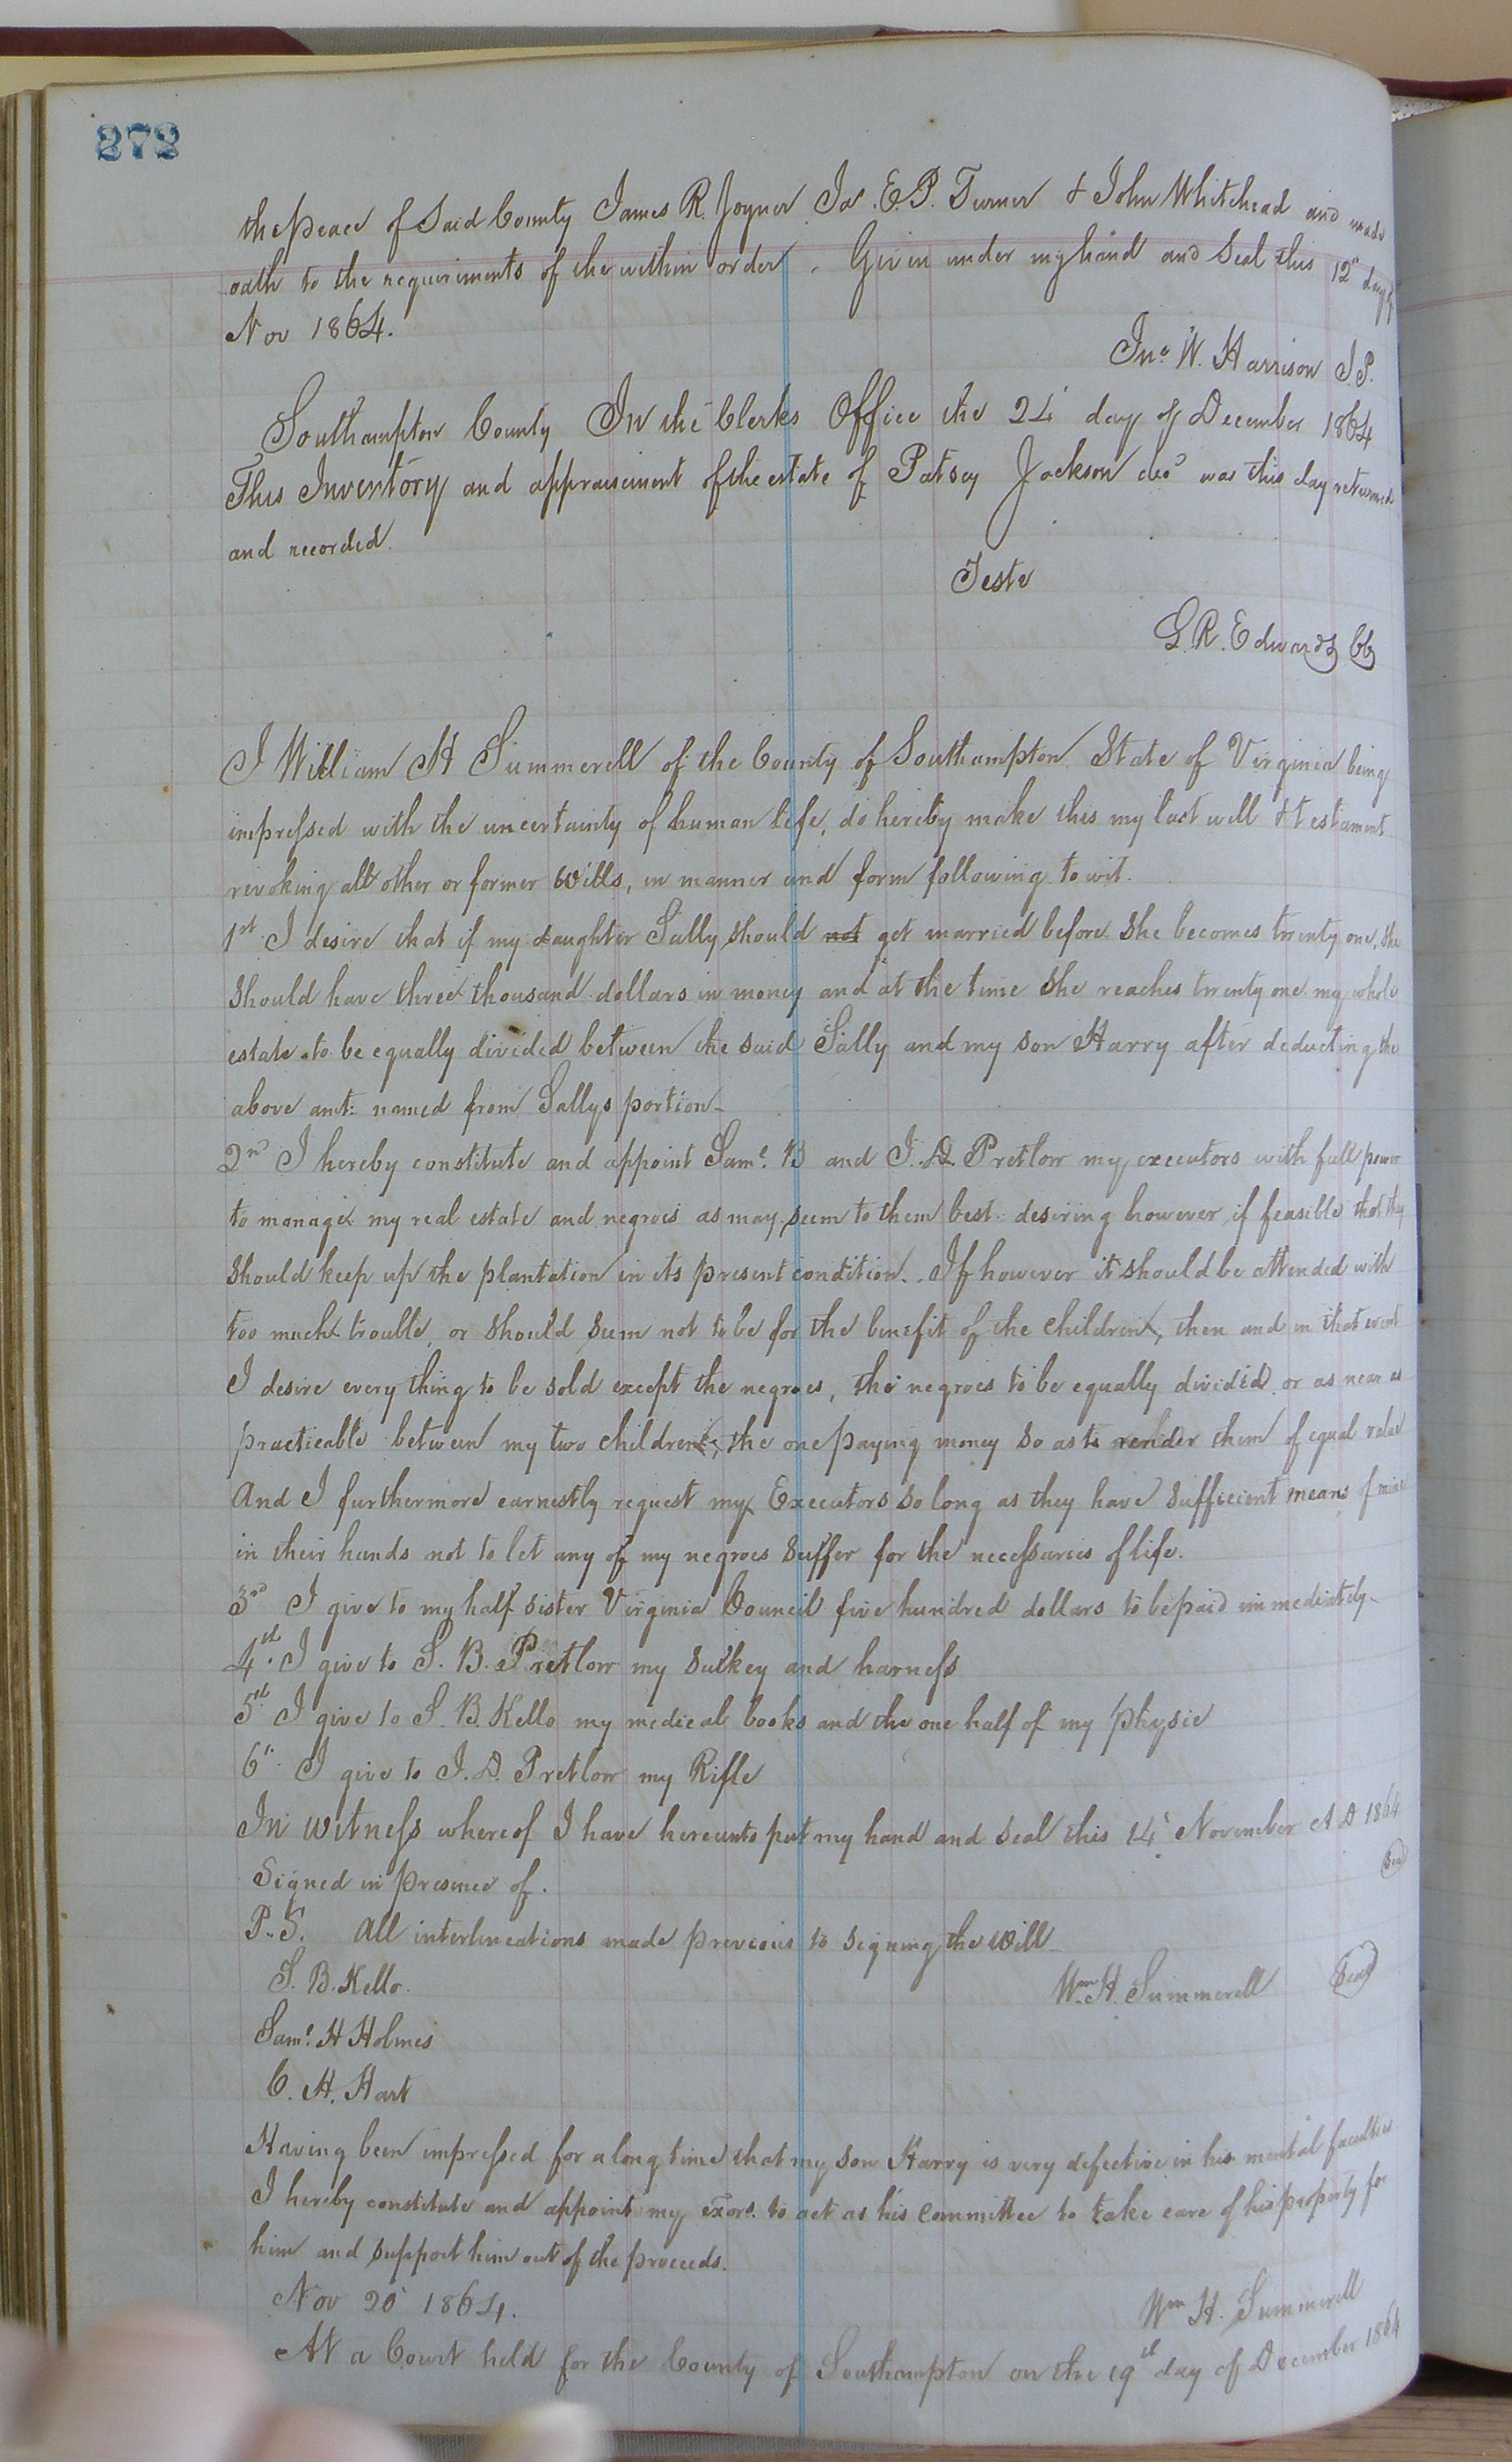 272
the peace of Said County James R. Joyner Jas. E. P. Turner & John Whitehead and made
oath to the requiriments of the within order. Given under my hand and Seal this 12" day of
Nov 1864.
Jno. W. Harrison J.P.
Southampton County In the Clerks Office the 24 day of December 1864
This Inventory and appraisement of the estate of Patsey Jackson decd was this day returned
and recorded.
Teste
L. R. Edwards CC
I William H Summerell of the County of Southampton State of Virginia being
impressed with the uncertainty of human life, do hereby make this my last will & testament
revoking all other or former Wills, in manner and form following to wit.
1st I desire that if my daughter Sally should not get married before She becomes twenty one, She
should have three thousand dollars in money and at the time She reaches twenty one my whole
estate to be equally divided between the said Sally and my son Harry after deducting the
above amt: named from Sallys portion-
2nd I hereby constitute and appoint Saml. B and J. D. Pretlow my executors with full power
to manage my real estate and negroes as may seem to them best desiring however, if feasible that they
should keep up the plantation in its present condition. If however it should be attended with
too much trouble, or should seem not to be for the benefit of the children, then and in that event
I desire every thing to be sold except the negroes, the negroes to be equally divided or as near as
practicable between my two children, the one paying money so as to render them of equal value
And I furthermore earnestly request my Executors so long as they have sufficient means of mine
in their hands not to let any of my negroes suffer for the necessaries of life.
3rd I give to my half sister Virginia Council five hundred dollars to be paid immediately-
4th. I give to S. B. Pretlow my sulkey and harness
5th I give to S. B. Kello my medical books and the one half of my physic
6th I give to J. D. Pretlow my Rifle
In witness whereof I have hereunto put my hand and seal this 14 November A D 1864
Seal
Signed in presence of.
P.S. All interlineations made previous to signing the Will-
S. B. Kello. Wm. H. Summerell Seal
Saml. H Holmes
C. H. Hart
Having been impressed for a long time that my son Harry is very defective in his mental faculties
I hereby constitute and appoint my exors. to act as his committee to take care of his property for
him and support him out of the proceeds.
Nov 20 1864. Wm H. Summerell
At a Court held for the County of Southampton on the 19th day of December 1864